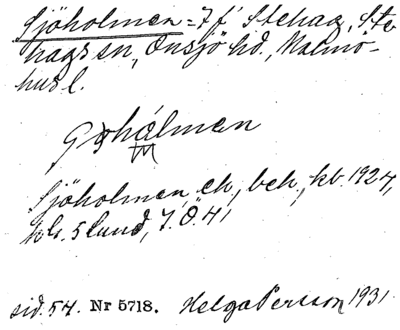 Sjöholmen = 7 f Stehag, Ste
hags sn, Onsjö hd., Malmö-
hus l.
Sjöholmen, eh, beh, kb. 1924,
hls. 5 Lund, 7.Ö.41
sid. 54. Nr 5718. Helga Persson 1931